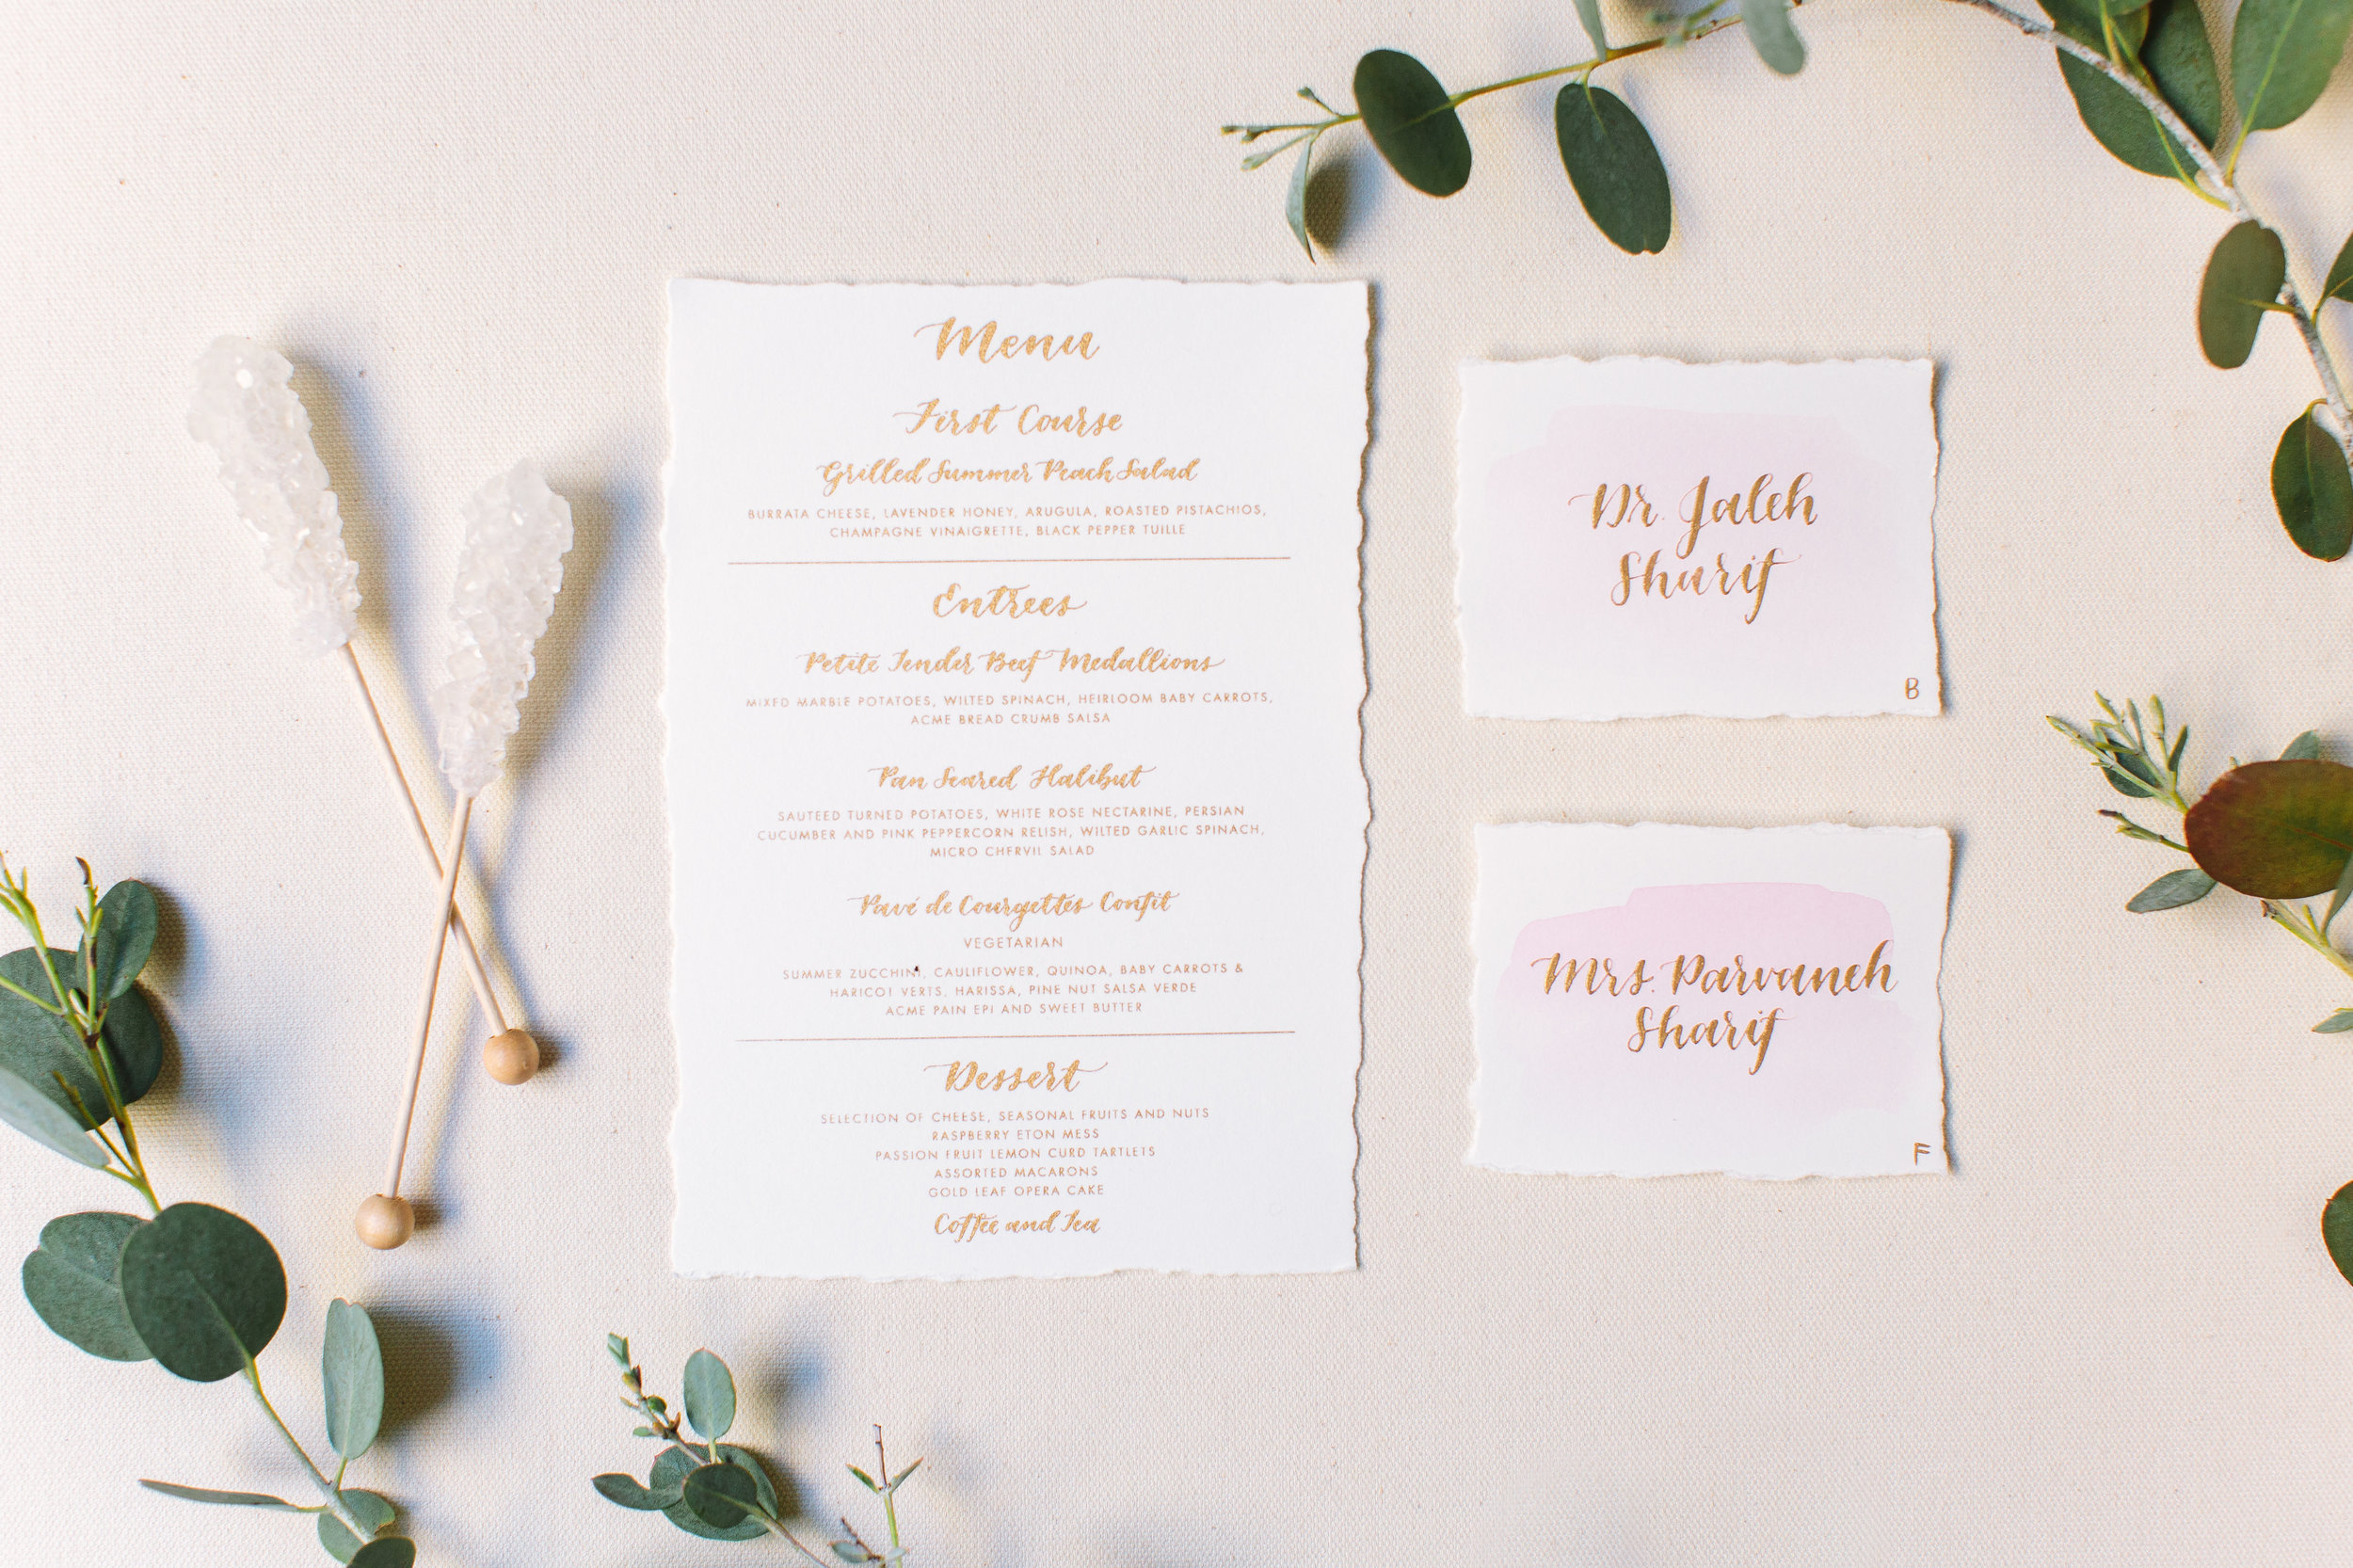 Menu
First Course
Grilled Summer Peach Salad
BURRATA CHEESE, LAVENDER HONEY, ARUGULA, ROASTED PISTACHIOS,
CHAMPAGNE VINAIGRETTE, BLACK PEPPER TUILLE
Entrees
Petite Tender Beef Medallions
MIXED MARBLE POTATOES, WILTED SPINACH, HEIRLOOM BABY CARROTS,
ACME BREAD CRUMB SALSA
Pan Seared Halibut
SAUTEED TURNED POTATOES, WHITE ROSE NECTARINE, PERSIAN
CUCUMBER AND PINK PEPPERCORN RELISH, WILTED GARLIC SPINACH,
MICRO CHERVIL SALAD
Pavé de Courgettes Confit
VEGETARIAN
SUMMER ZUCCHINI, CAULIFLOWER, QUINOA, BABY CARROTS &
HARICOT VERTS, HARISSA, PINE NUT SALSA VERDE
ACME PAIN EPI AND SWEET BUTTER
Dessert
SELECTION OF CHEESE, SEASONAL FRUITS AND NUTS
RASPBERRY ETON MESS
PASSION FRUIT LEMON CURD TARTLETS
ASSORTED MACARONS
GOLD LEAF OPERA CAKE
Coffee and Tea
Dr. Jaleh
Sharif
B
Mrs. Parvaneh
Sharif
F